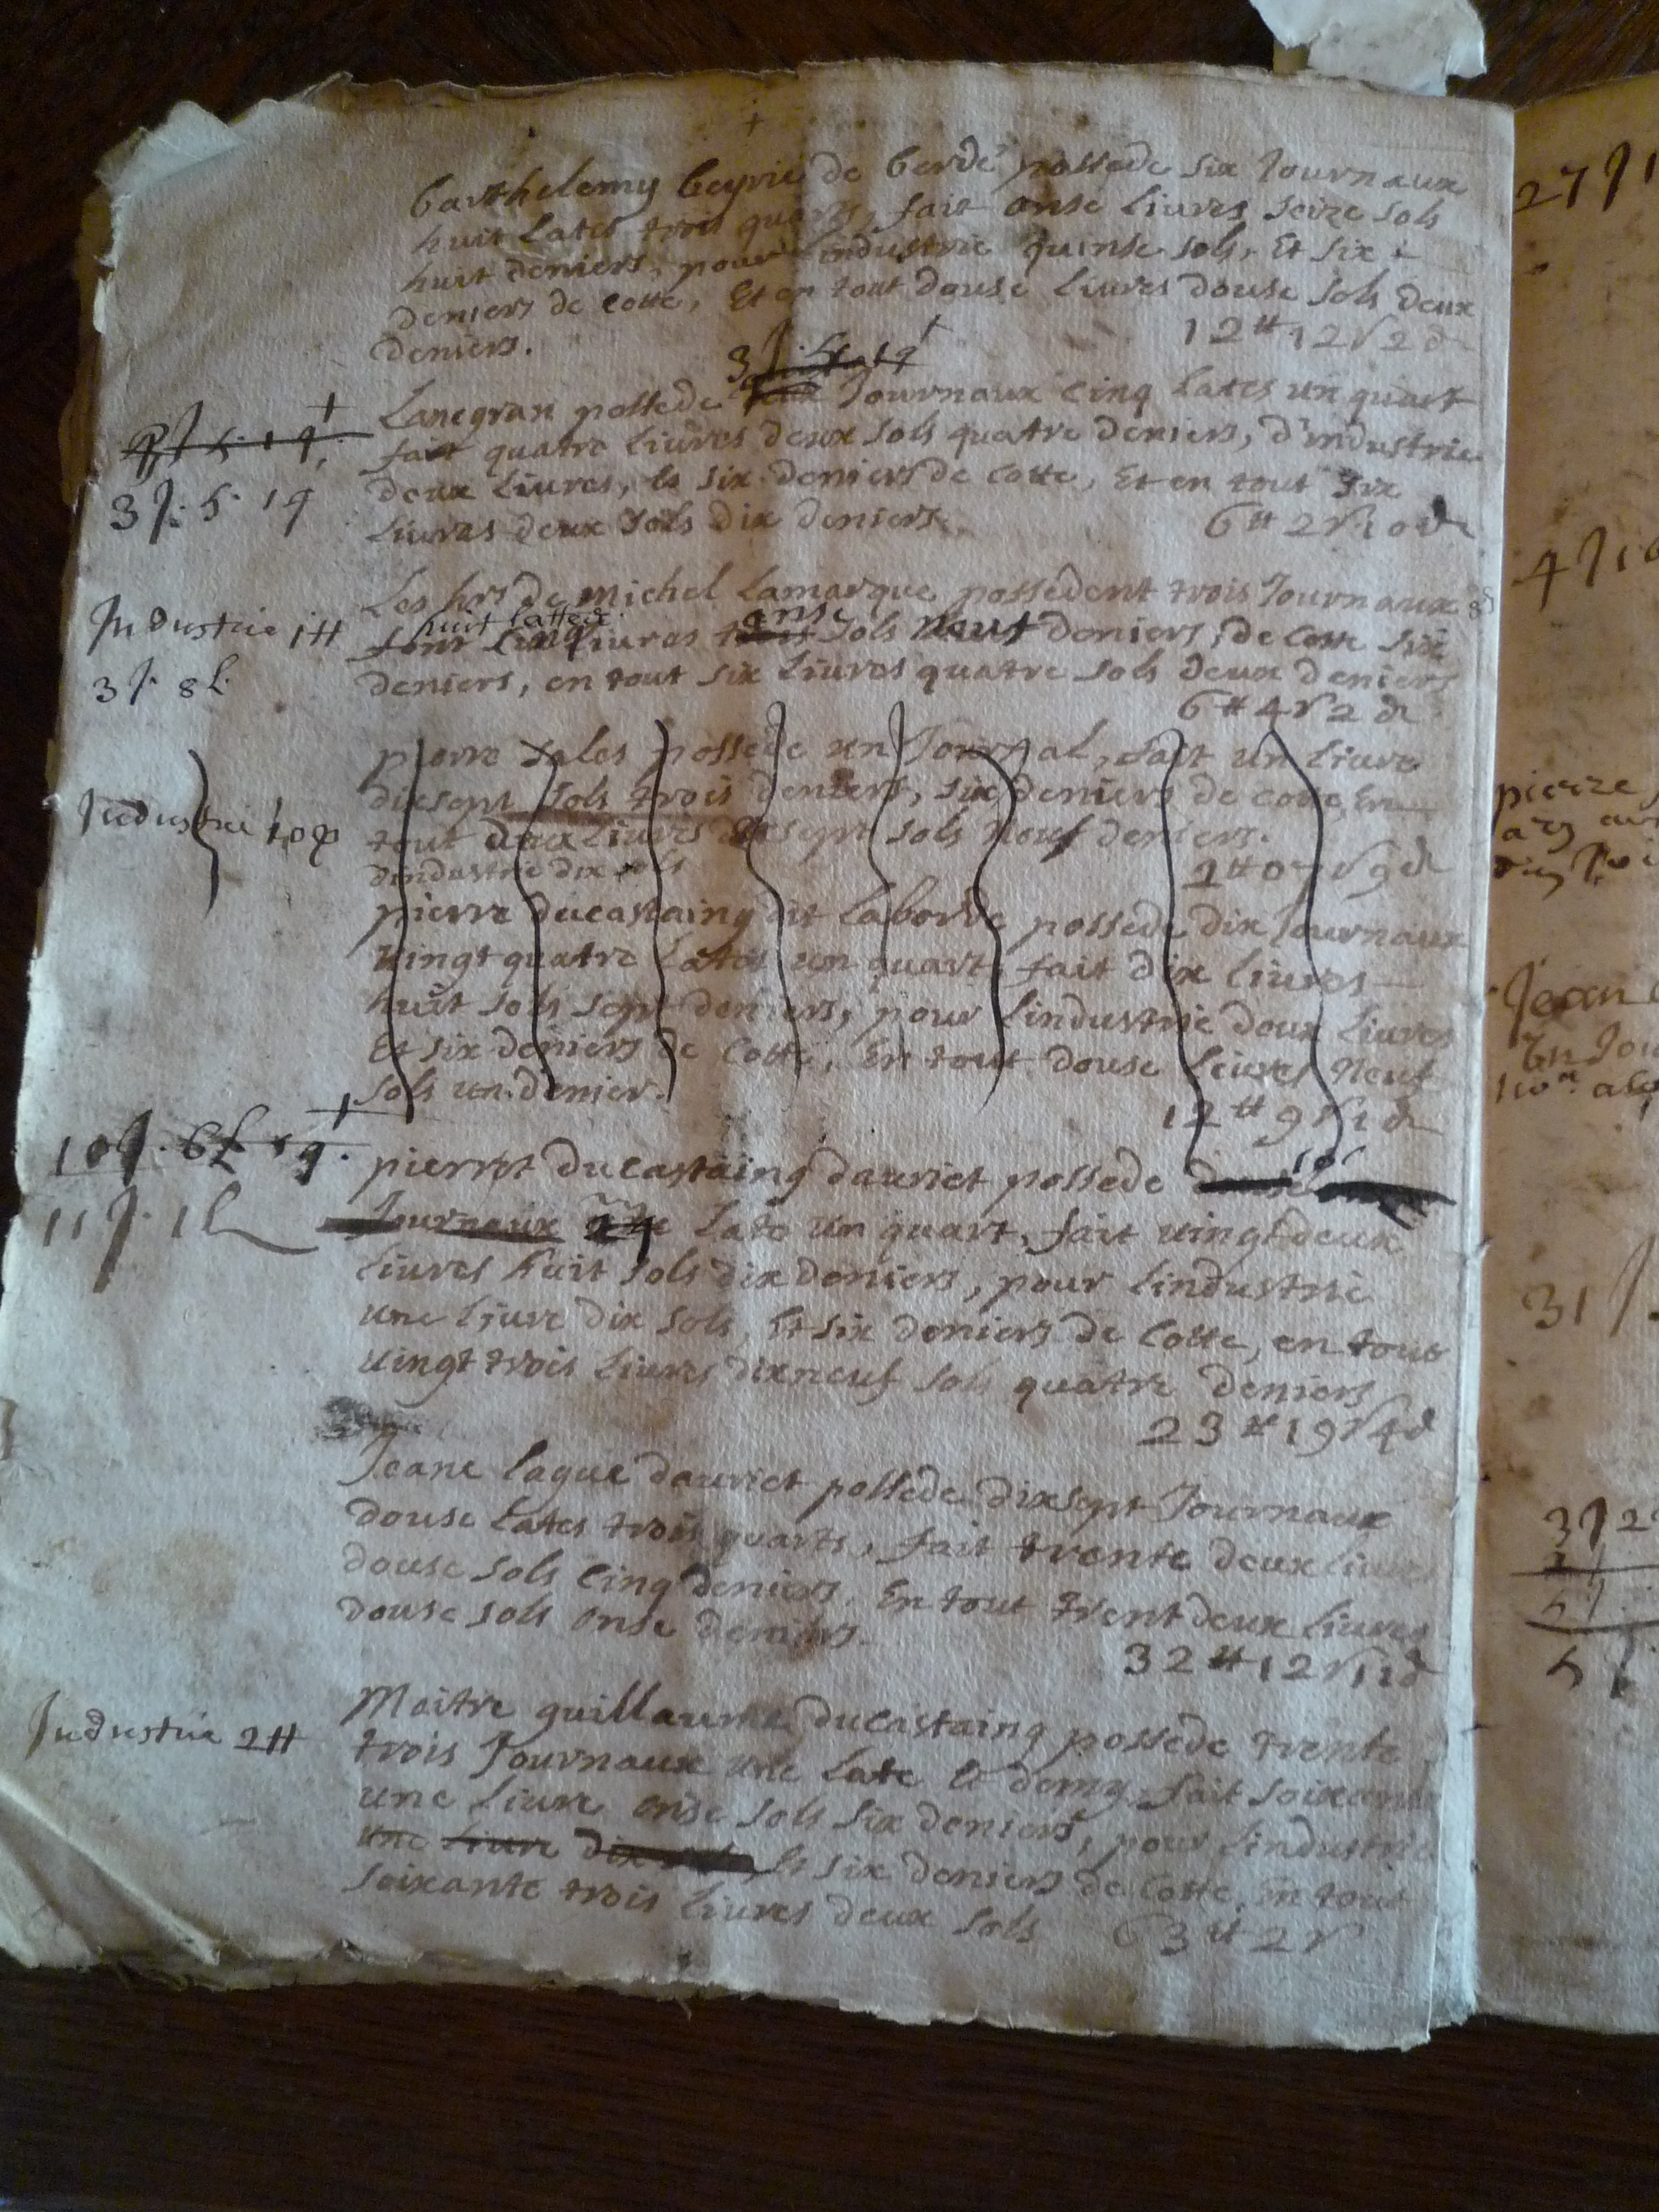 Barthelemy Beyrie de Berdé possede six Journaux
huit Lates trois quarts, fait onse Livres seize sols
huit deniers, pour industrie quinse sols, Et six
deniers de Cotte, Et en tout douse Livres douse sols deux
deniers.
12 ₶ 12 s 2 d
3 J.
Lanegran possede Journaux Cinq Lates un quart
fait quatre Livres deux sols quatre deniers, d'industrie
deux Livres, & six deniers de Cotte, Et en tout six
Livres deux sols dix deniers.
6 ₶ 2 s 10 d
3 J. 5. 1 q
Les hrs de Michel Lamarque possedent trois Journaux
huit lattes
font Cinq Livres onse sols neuf deniers, de Cotte six
deniers, en tout six Livres quatre sols deux deniers
6 ₶ 4 s 2 d
Industrie 1 ₶
3 J. 8 L.
pierre Sales possede un Journal, fait un Livre
dixsept sols trois deniers, six deniers de Cotte, En
tout deux Livres sept sols neuf deniers.
dindustrie dix sols
2 ₶ 07 s 9 d
Industrie 10
pierre ducastaing dit Laborde possede dix Journaux
vingt quatre Lates un quart, fait dix Livres
huit sols sept deniers, pour Lindustrie deux Livres
Et six deniers de Cotte, En tout douse Livres Neuf
sols un denier.
12 ₶ 9 s 1 d
10 J. 6 L 1 q.
11 J. 1 L
pierrot ducastaing dauriet possede
Journaux Late un quart, fait vingt deux
Livres huit sols dix deniers, pour Lindustrie
une Livre dix sols, Et six deniers de Cotte, en tout
vingt trois Livres dixneuf sols quatre deniers
23 ₶ 19 s 4 d
Jeane Lague dauriet possede dixsept Journaux
douse Lates trois quarts, fait trente deux Livres
douse sols Cinq deniers, En tout trent deux Livres
douse sols onse deniers.
32 ₶ 12 s 11 d
Industrie 2 ₶
Maitre guillaume ducastaing possede trente
trois Journaux une Late & demy, fait soixante
une Livre onse sols six deniers, pour Lindustrie
une Livre dix & six deniers de Cotte, En tout
soixante trois Livres deux sols 63 ₶ 2 s
27 J 1
4 J 1
pierre
Jean
En Jou
31 J.
3 J 2